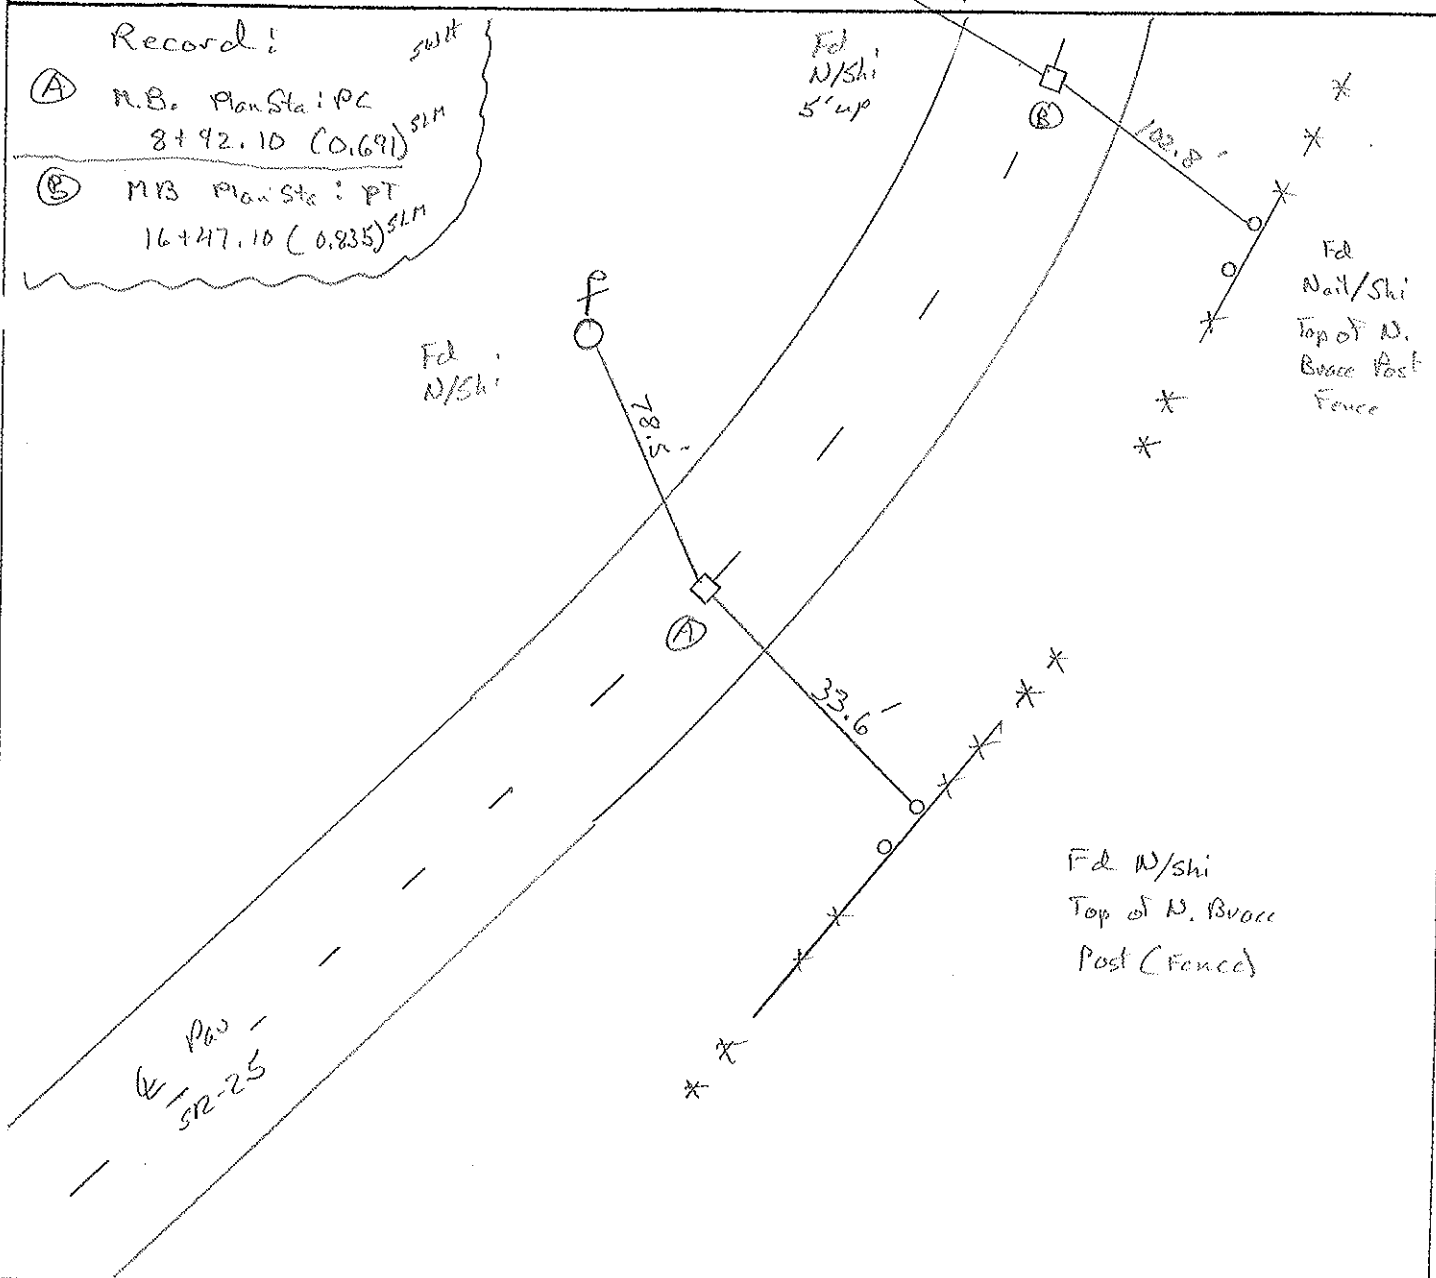 Record:
(A) M.B. Plan Sta: PC
8+92.10 (0.691) SLM
(B) MB Plan Sta: PT
16+47.10 (0.835) SLM
Fd
N/Shi
5' up
(B)
102.8'
Fd
Nail/Shi
Top of N.
Brace Post
Fence
Fd
N/Shi
78.5'
(A)
33.6'
Fd N/shi
Top of N. Brace
Post (Fence)
Pav
SR-25